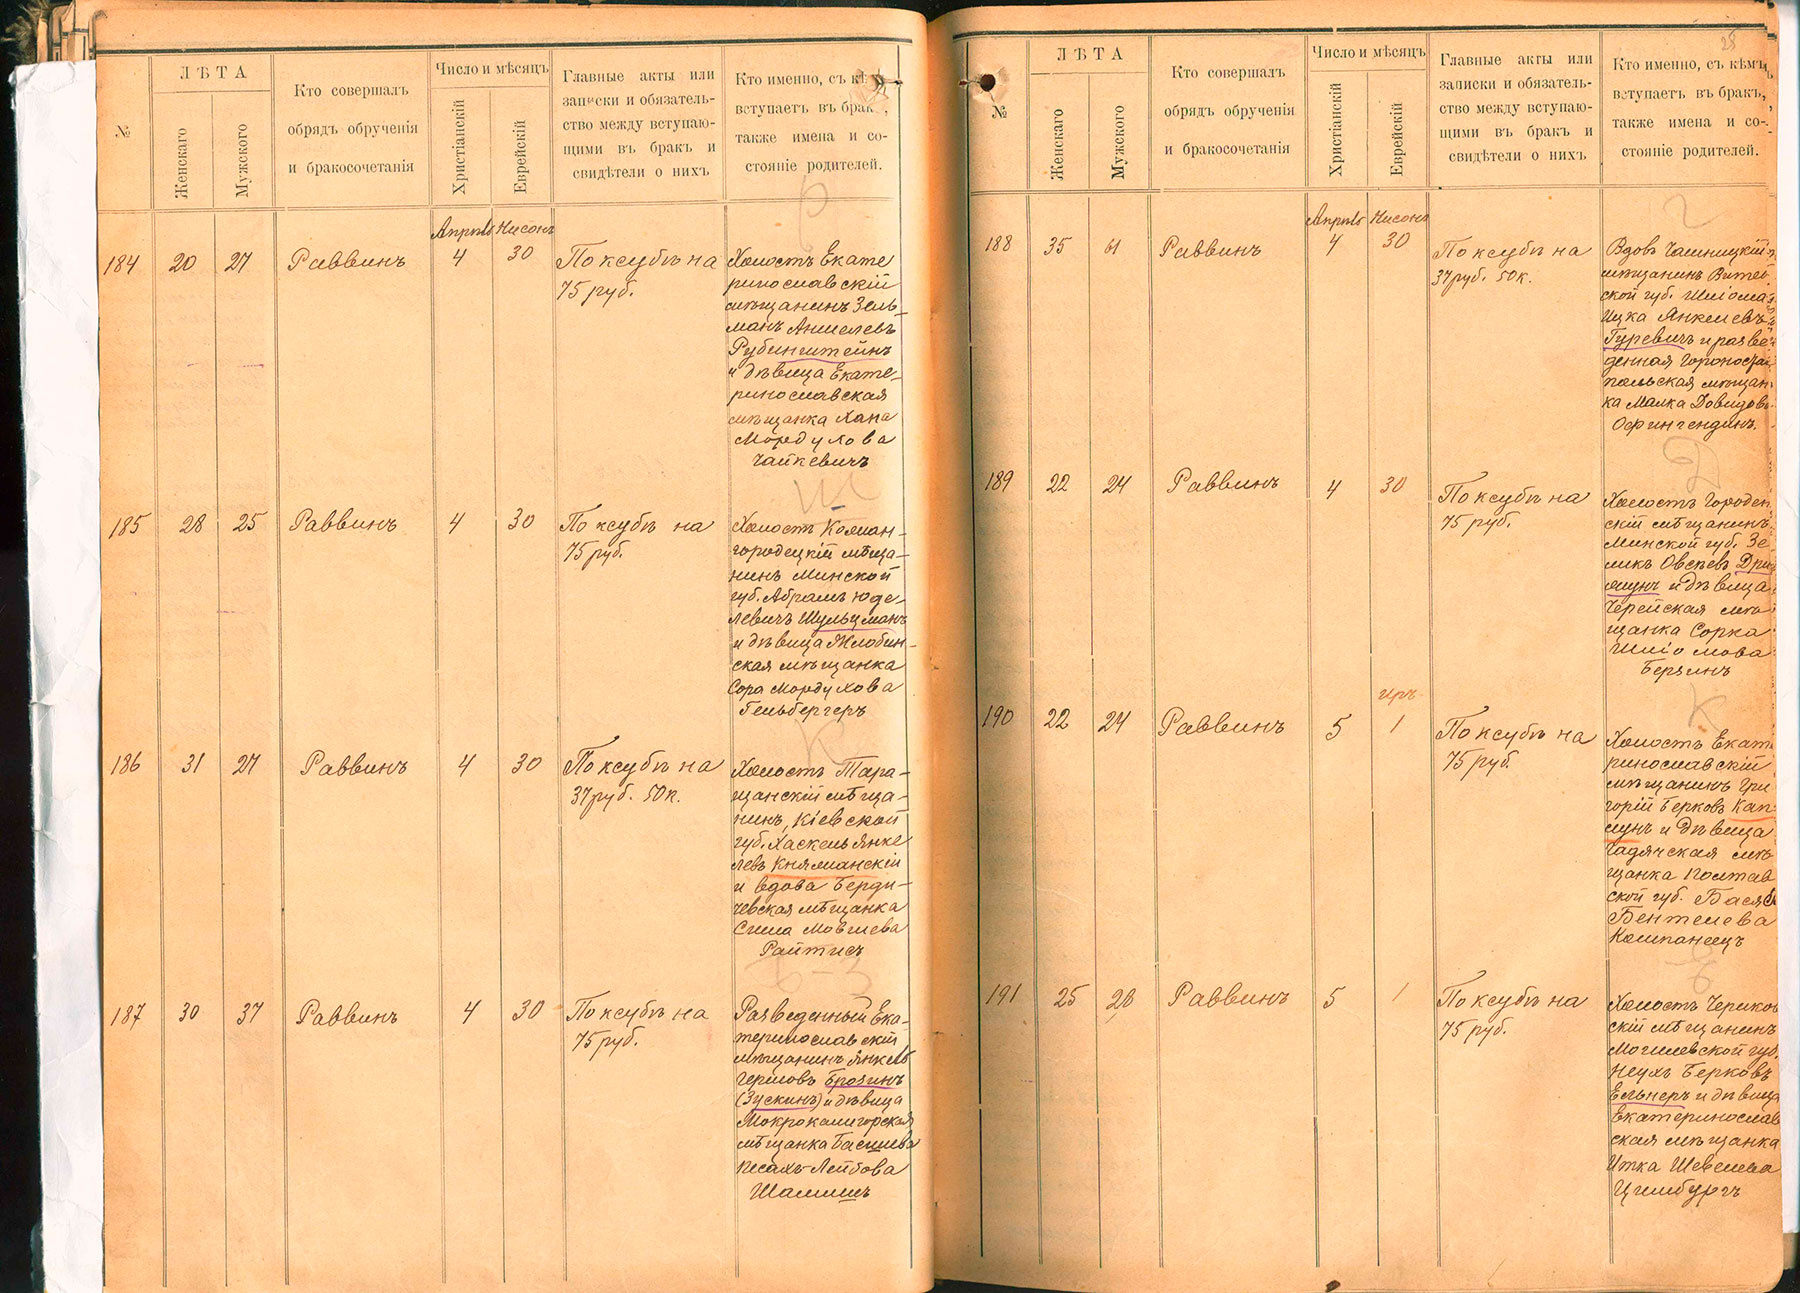 №
ЛѢТА
Женскаго
Мужского
Кто совершалъ
обрядъ обрученія
и бракосочетанія
Число и мѣсяцъ
Христіанскій
Еврейскій
Главные акты или
записки и обязатель-
ство между вступаю-
щими въ бракъ и
свидѣтели о нихъ
Кто именно, съ кѣ
вступаетъ въ брак ,
также имена и со-
стояніе родителей.
Апрѣль Нисонъ
184 20 27 Раввинъ 4 30
По ксубѣ на
75 руб.
Холостъ Екате
ринославскій
мѣщанинъ Зель-
манъ Аншелевъ
Рубинштейнъ
и дѣвица Екате-
ринославская
мѣщанка Хана
Мордухова
Чайкевичъ
Ш
185 28 25 Раввинъ 4 30
По ксубѣ на
75 руб.
Холостъ
городецкій мѣща-
нинъ Минской
губ. Абрамъ Юде-
левичъ Шульцманъ
и дѣвица Жлобин-
ская мѣщанка
Сора Мордухова
Гельбергеръ
К
186 31 27 Раввинъ 4 30
По ксубѣ на
37 руб. 50 к.
Холостъ Тара-
щанскій мѣща-
нинъ, Кіевской
губ. Хаскель Янке
левъ Княжанскій
и вдова Берди-
чевская мѣщанка
Сима Мовшева
Райтисъ
Б-З
187 30 37 Раввинъ 4 30
По ксубѣ на
75 руб.
Разведенный Ека-
теринославскій
мѣщанинъ Янкель
Гершовъ Брозинъ
(Зускинъ) и дѣвица
Мокрокалигорская
мѣщанка Басшева
Песахъ-Лейбова
Шамишъ
28
№
ЛѢТА
Женскаго
Мужского
Кто совершалъ
обрядъ обрученія
и бракосочетанія
Число и мѣсяцъ
Христіанскій
Еврейскій
Главные акты или
записки и обязатель-
ство между вступаю-
щими въ бракъ и
свидѣтели о нихъ
Кто именно, съ кѣмъ
вступаетъ въ бракъ,
также имена и со-
стояніе родителей.
Апрѣль Нисонъ
Г
188 35 61 Раввинъ 4 30
По ксубѣ на
37 руб. 50 к.
Вдовъ Чашницкій
мѣщанинъ Витеб
ской губ. Шліома
Ицка Янкелевъ
Гуревичъ и разве
денная Горностай
польская мѣщан
ка Малка Довидов
Офингендинъ.
Д
189 22 24 Раввинъ 4 30
По ксубѣ на
75 руб.
Холостъ Городен
скій мѣщанинъ
Минской губ. Зе
ликъ Овсѣевъ Дри
и дѣвица
Черейская мѣ
щанка Сорка
Шліомова
Берзинъ
К
Иръ
190 22 24 Раввинъ 5 1
По ксубѣ на
75 руб.
Холостъ Екат
ринославскій
мѣщанинъ Гри
горій Берковъ Кап
лунъ и дѣвица
Гадячская мѣ
щанка Полтав
ской губ. Бася
Бентелева
Компанеецъ
191 25 28 Раввинъ 5 1
По ксубѣ на
75 руб.
Холостъ Чериков
скій мѣщанинъ
Могилевской губ.
Неухъ Берковъ
Ельнеръ и дѣвица
Екатеринослав
ская мѣщанка
Итка Шевелева
Цимбургъ